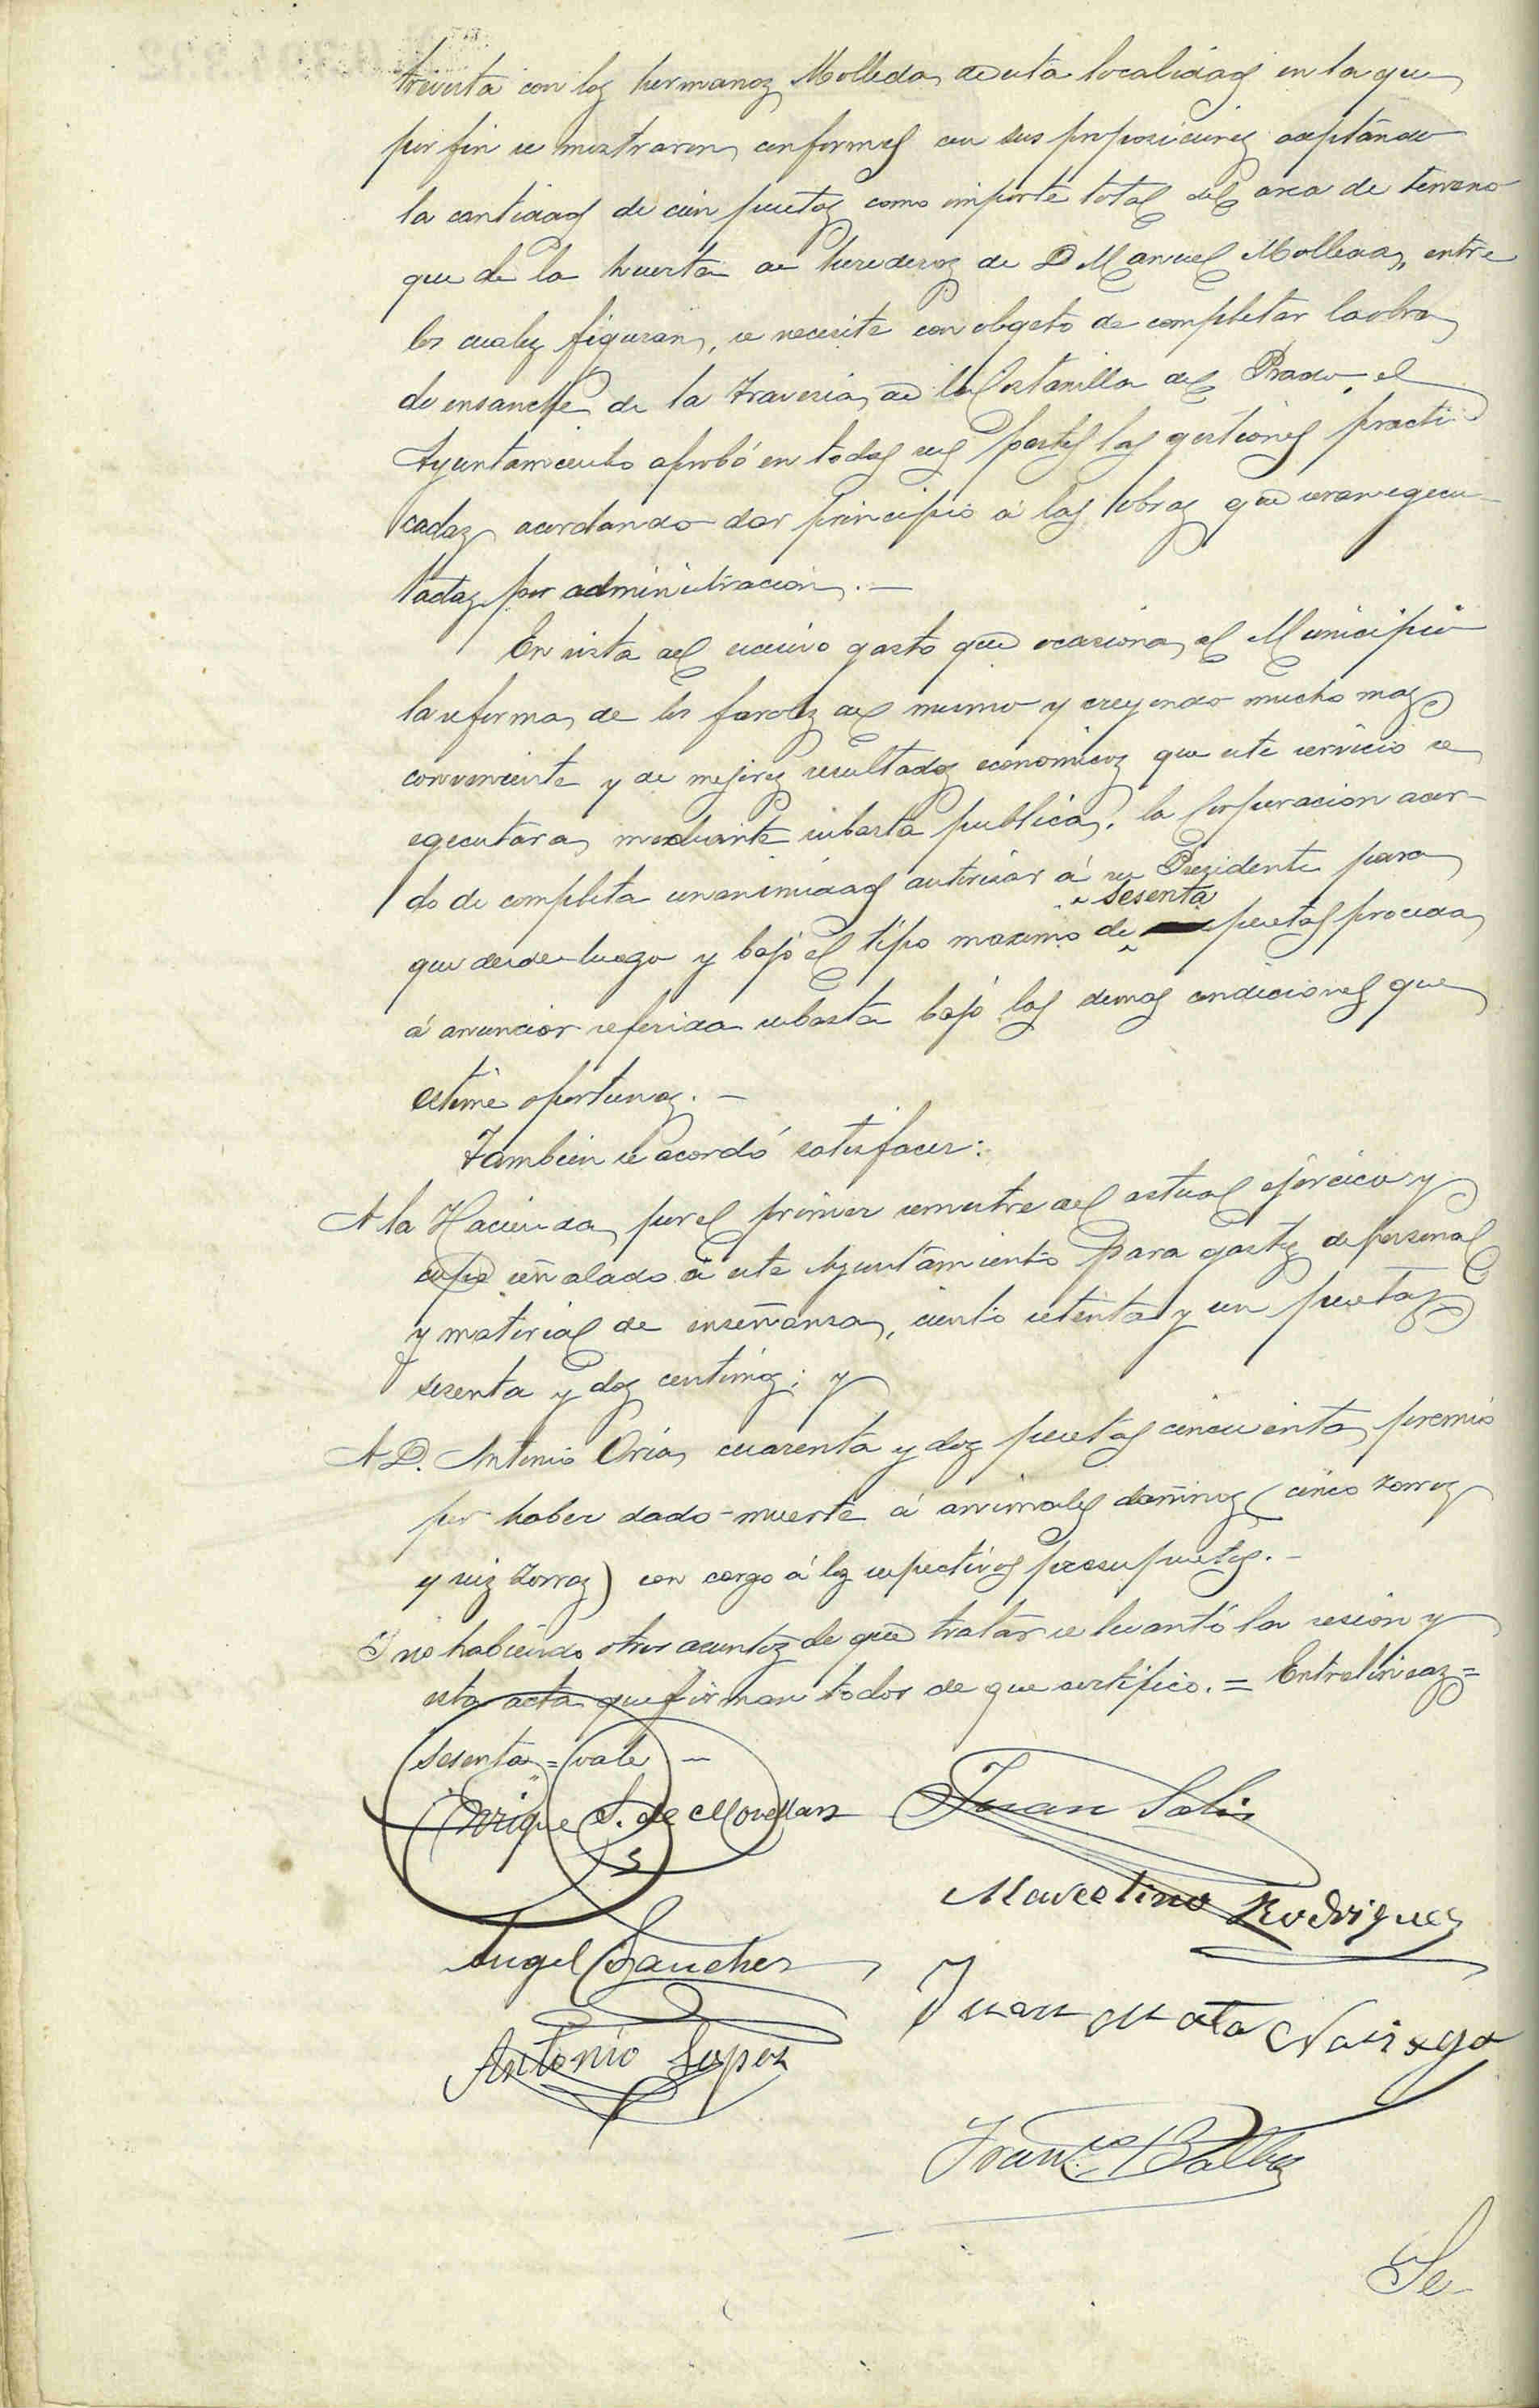 trevista con los hermanos Molleda, de esta localidad en la que
por fin se mostraron conformes con sus proposiciones aceptando
la cantidad de cien pesetas como importe total del area de terreno
que de la huerta de herederos de D. Manuel Molleda, entre
los cuales figuran, se necesite con obgeto de completar la obra
de ensanche de la travesia de la Costanilla del Prado, el
Ayuntamiento aprobó en todas sus partes las gestiones practi-
cadas acordando dar principio á las obras que seran egecu-
tadas por administracion.—
En vista del excesivo gasto que ocasiona al Municipio
la reforma de los faroles del mismo y creyendo mucho mas
conveniente y de mejores resultados economicos que este servicio se
egecutara mediante subasta publica, la Corporacion acor-
dó de completa unanimidad autorisar á su Presidente para
sesenta
que desde luego y bajo el tipo maximo de pesetas proceda
á anunciar referida subasta bajo las demas condiciones que
estime oportunas.—
Tambien se acordó satisfacer:
A la Hacienda, por el primer semestre del actual ejercicio y
cupo señalado á este Ayuntamiento para gastos de personal
y material de enseñansa, ciento setenta y un pesetas
sesenta y dos centimos; y
A D. Antonio Oria, cuarenta y dos pesetas cincuenta, premio
por haber dado muerte á animales dañinos (cinco zorros
y seis zorras) con cargo á los respectivos presupuestos.—
Y no habiendo otros asuntos de que tratar se levantó la sesion y
esta acta que firman todos de que certifico.= Entrelineas=
sesenta=vale—
Enrique S. de Movellan
Juan Solis
Marcelino Rodriguez
Angel Sanchez
Juan Mata Noriega
Antonio Lopez
Franco Balbas
Se-